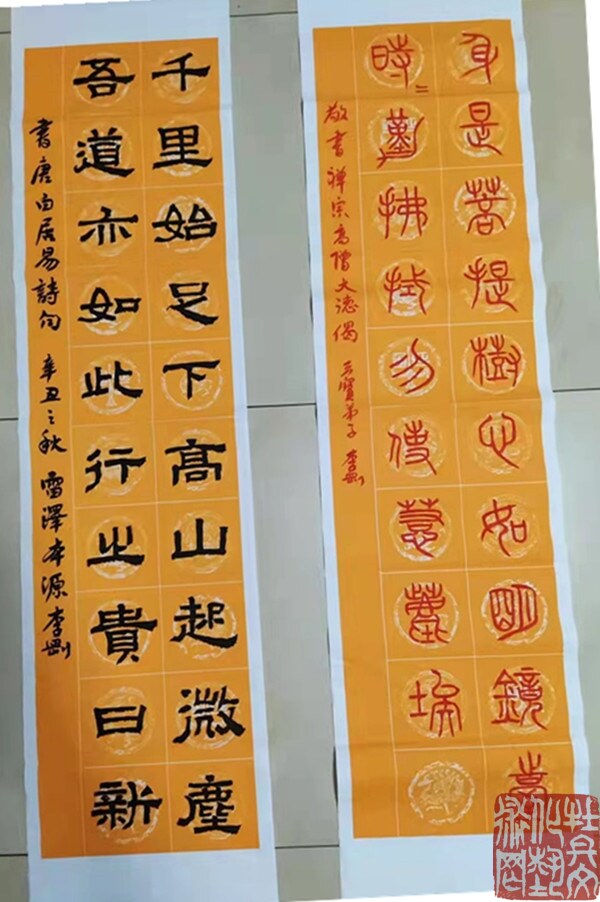 身是菩提樹心如明鏡臺
時〻勤拂拭勿使惹塵埃
敬書禅宗高僧大德偈 三寶弟子 李剛
千里始足下高山起微塵
吾道亦如此行之貴日新
書唐白居易詩句 辛丑之秋 雷澤本源李剛